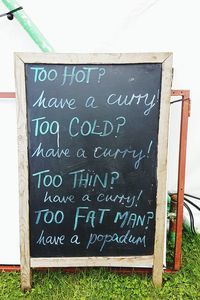 TOO HOT?
have a curry!
TOO COLD?
have a curry!
TOO THIN?
have a curry!
TOO FAT MAN?
have a popadum